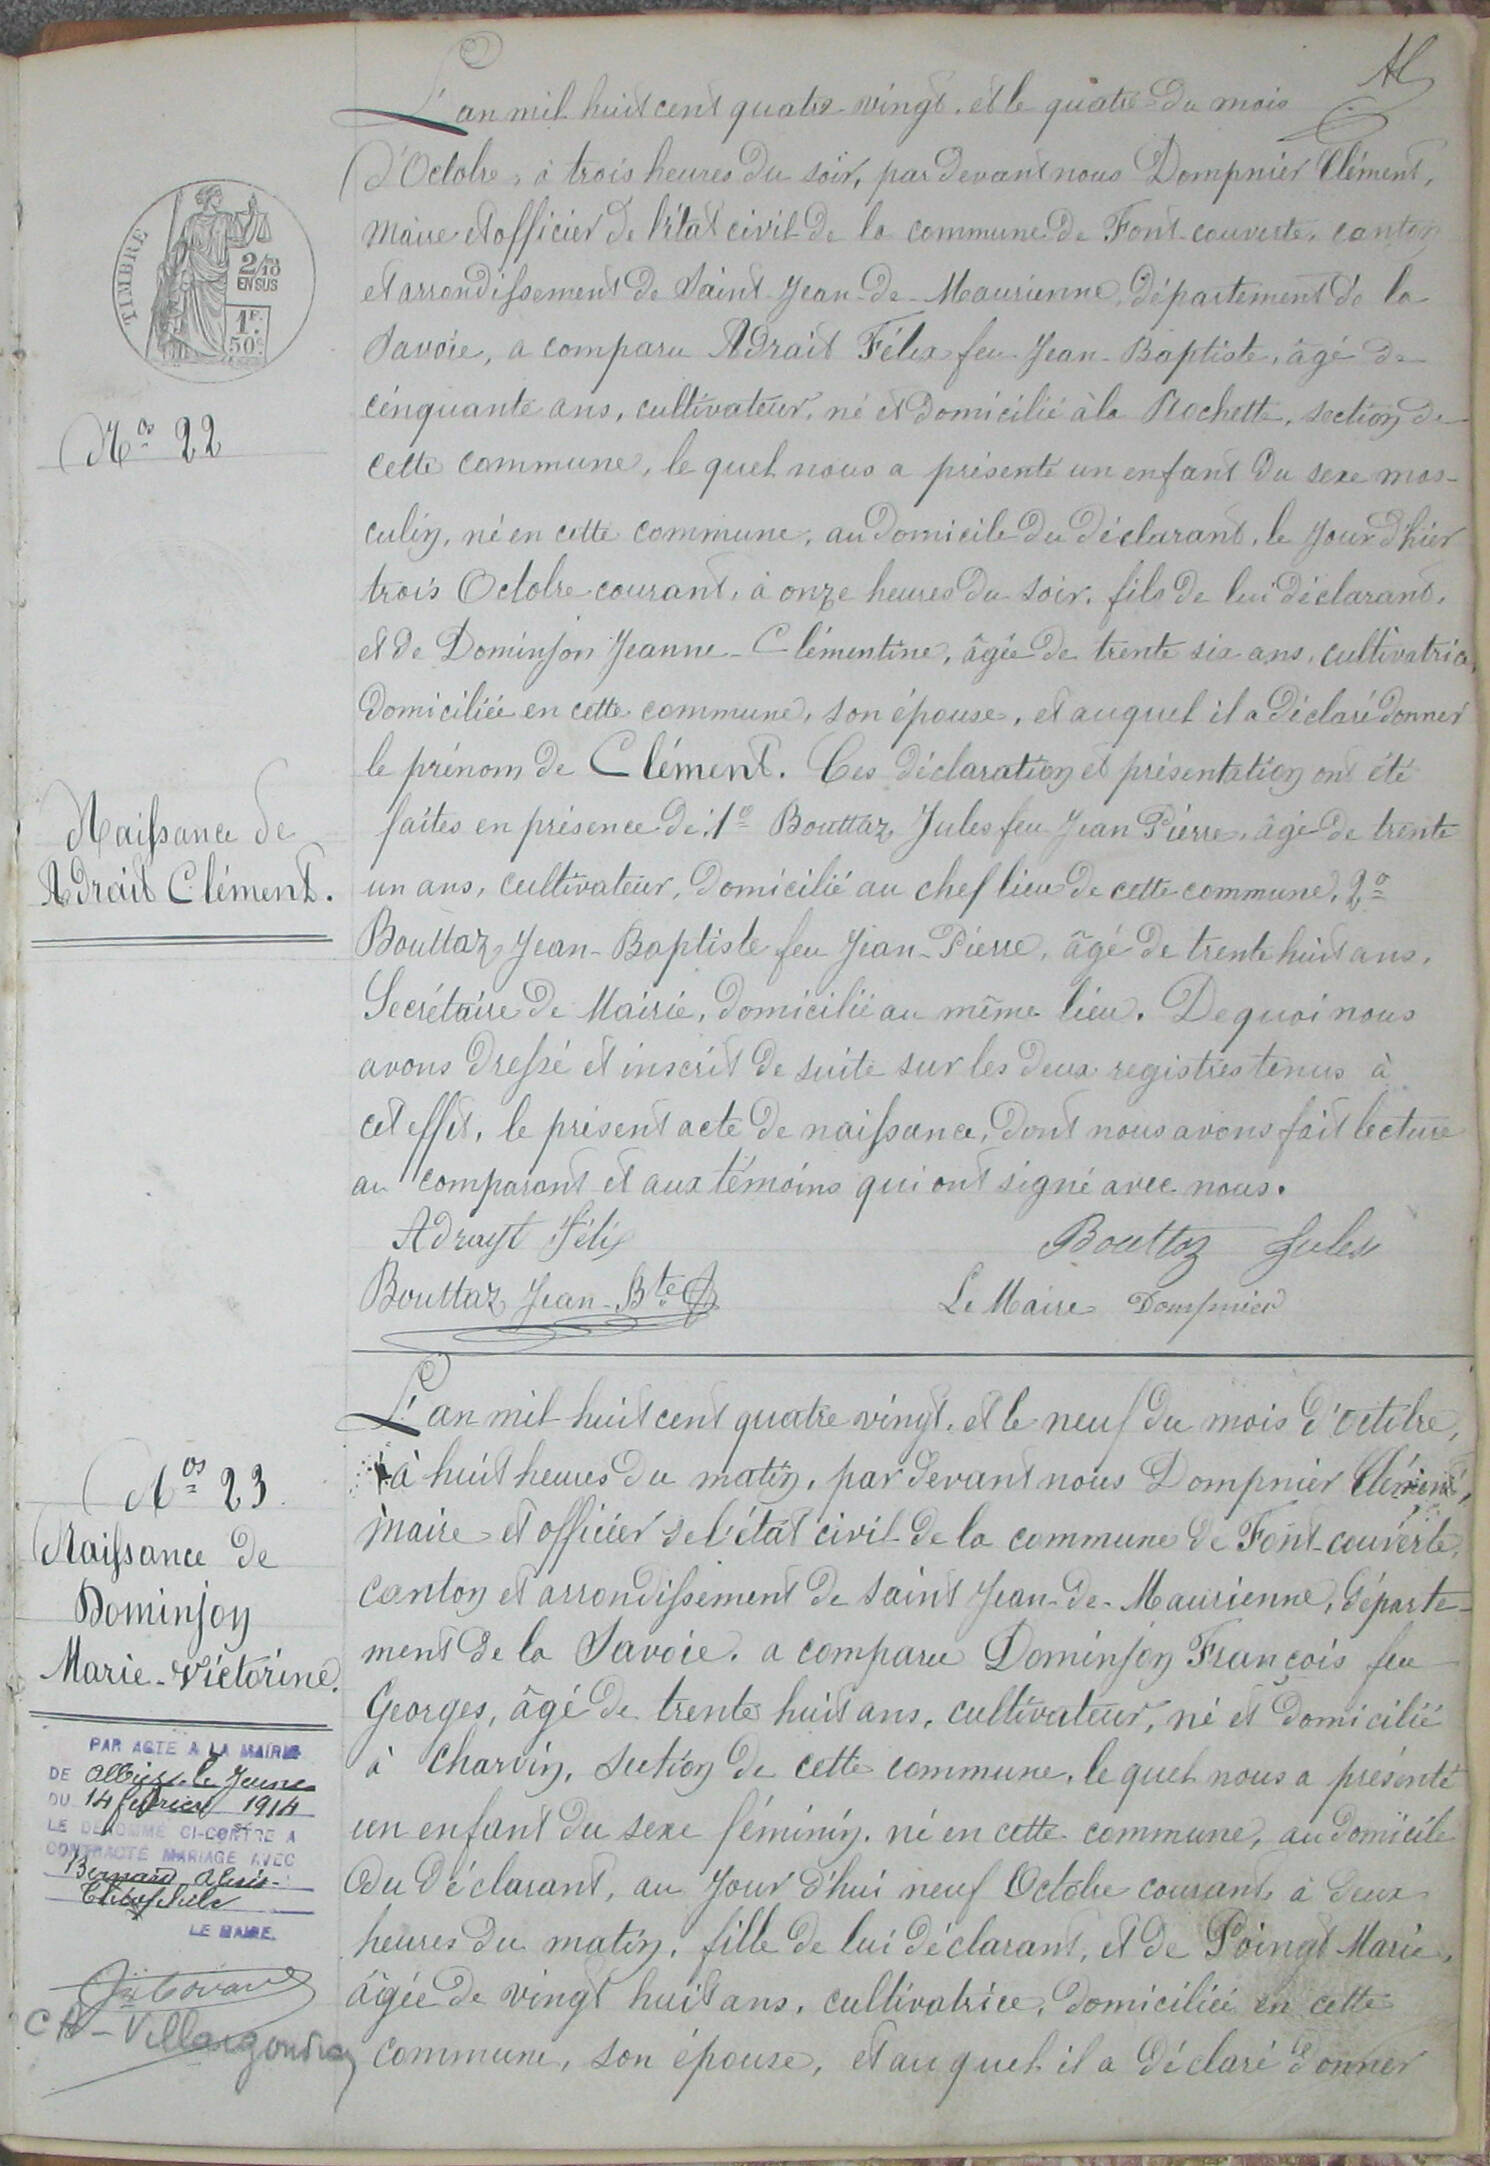 L'an mil huit cent quatre-vingt, et le quatre du mois
d'Octobre, à trois heures du soir, par devant nous Dompnier Clément,
Maire et officier de l'état civil de la commune de Font-couverte, canton
et arrondissement de Saint-Jean-de-Maurienne, département de la
Savoie, a comparu Adrait Félix feu Jean-Baptiste, âgé de
cinquante ans, cultivateur, né et domicilié à la Rochette, section de
cette commune, le quel nous a présenté un enfant du sexe mas-
culin, né en cette commune, au domicile du déclarant, le jour d'hier
trois Octobre courant, à onze heures du soir, fils de lui déclarant,
et de Dominjon Jeanne-Clémentine, âgée de trente six ans, cultivatrice,
domiciliée en cette commune, son épouse, et auquel il a déclaré donner
le prénom de Clément. Ces déclaration et présentation ont été
faites en présence de: 1º Bouttaz Jules feu Jean Pierre, âgé de trente
un ans, cultivateur, domicilié au chef lieu de cette commune, 2º
Bouttaz Jean-Baptiste feu Jean-Pierre, âgé de trente huit ans,
Secrétaire de Mairie, domicilié au même lieu. De quoi nous
avons dressé et inscrit de suite sur les deux registres tenus à
cet effet, le présent acte de naissance, dont nous avons fait lecture
au comparant et aux témoins qui ont signé avec nous.
Adrayt Félix Bouttaz Jules
Bouttaz Jean-Bte Le Maire Dompnier
TIMBRE
2/10
EN SUS
1F.
50c.
Nos 22
Naissance de
Adrait Clément.
L'an mil huit cent quatre vingt, et le neuf du mois d'Octobre,
à huit heures du matin, par devant nous Dompnier Clément,
maire et officier de l'état civil de la commune de Font-couverte,
canton et arrondissement de Saint Jean-de-Maurienne, départe-
ment de la Savoie, a comparu Dominjon François feu
Georges, âgé de trente huit ans, cultivateur, né et domicilié
à Charvin, section de cette commune, le quel nous a présenté
un enfant du sexe féminin, né en cette commune, au domicile
du déclarant, au jour d'hui neuf Octobre courant, à deux
heures du matin, fille de lui déclarant, et de Poingt Marie,
âgée de vingt huit ans, cultivatrice, domiciliée en cette
commune, son épouse, et au quel il a déclaré donner
Nos 23
Naissance de
Dominjon
Marie-Victorine.
PAR ACTE A LA MAIRIE
DE Albiez-le-Jeune
DU 14 février 1914
LE DÉNOMMÉ CI-CONTRE A
CONTRACTÉ MARIAGE AVEC
Bernard Alexis-
Théophile
LE MAIRE.
Villargondran